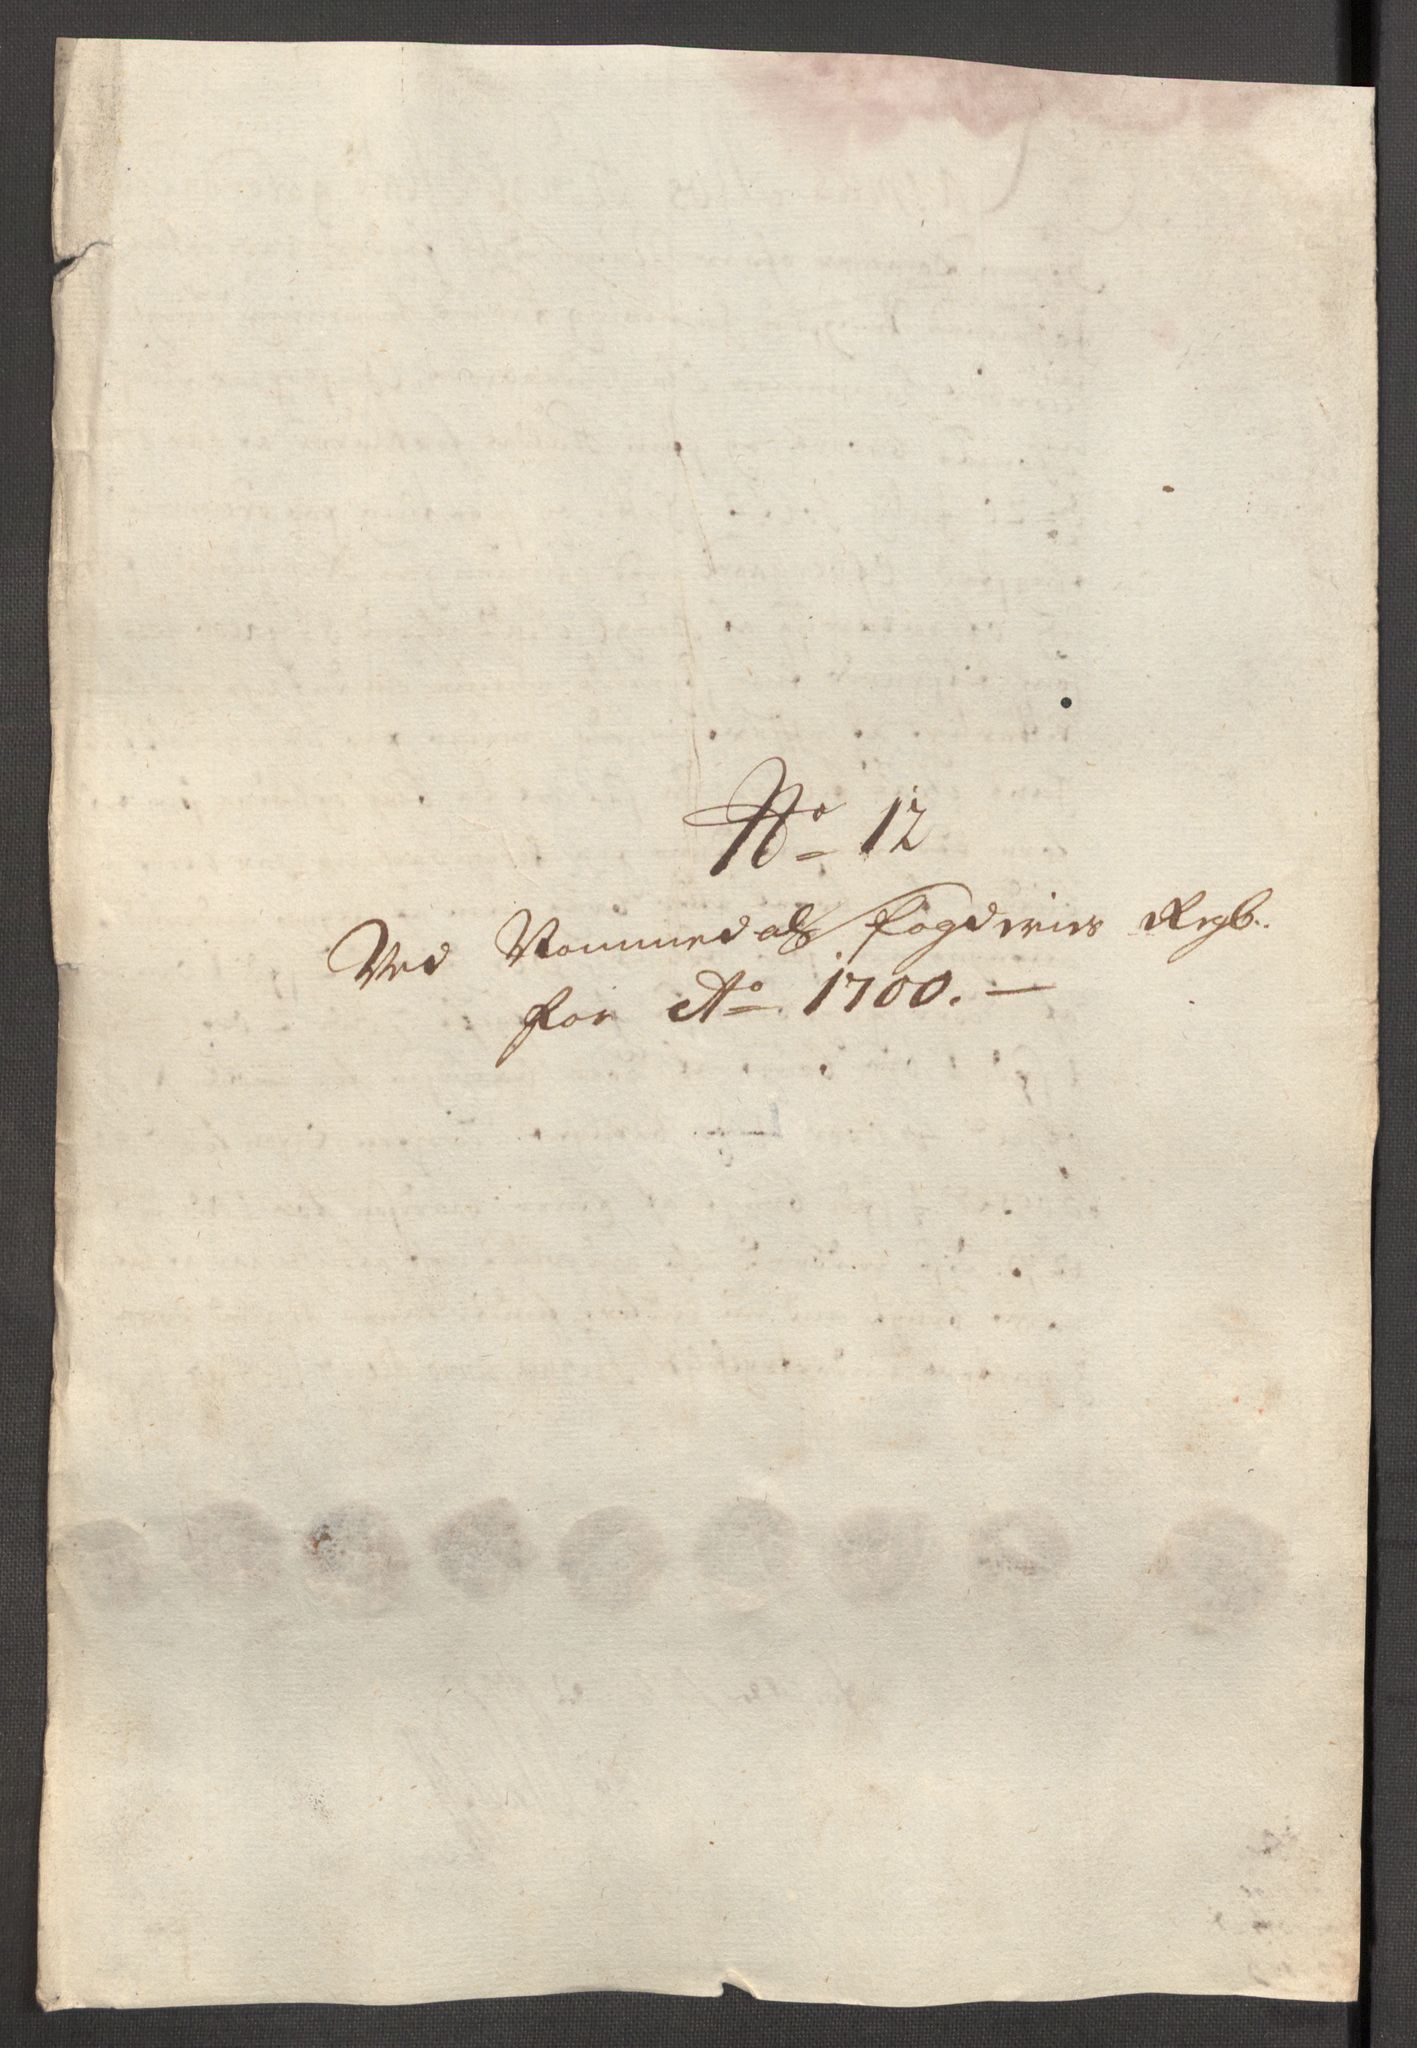 No 12
Ved Nommedals fogderies Regb.
for Ao 1700.